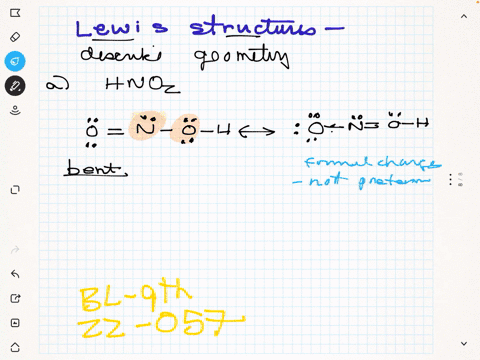 Lewis structures –
describe geometry
a) HNO2
O = N – O – H ⟷ :O – N = O – H
bent
Formal charge
– not preferred
BL-9th
22-057